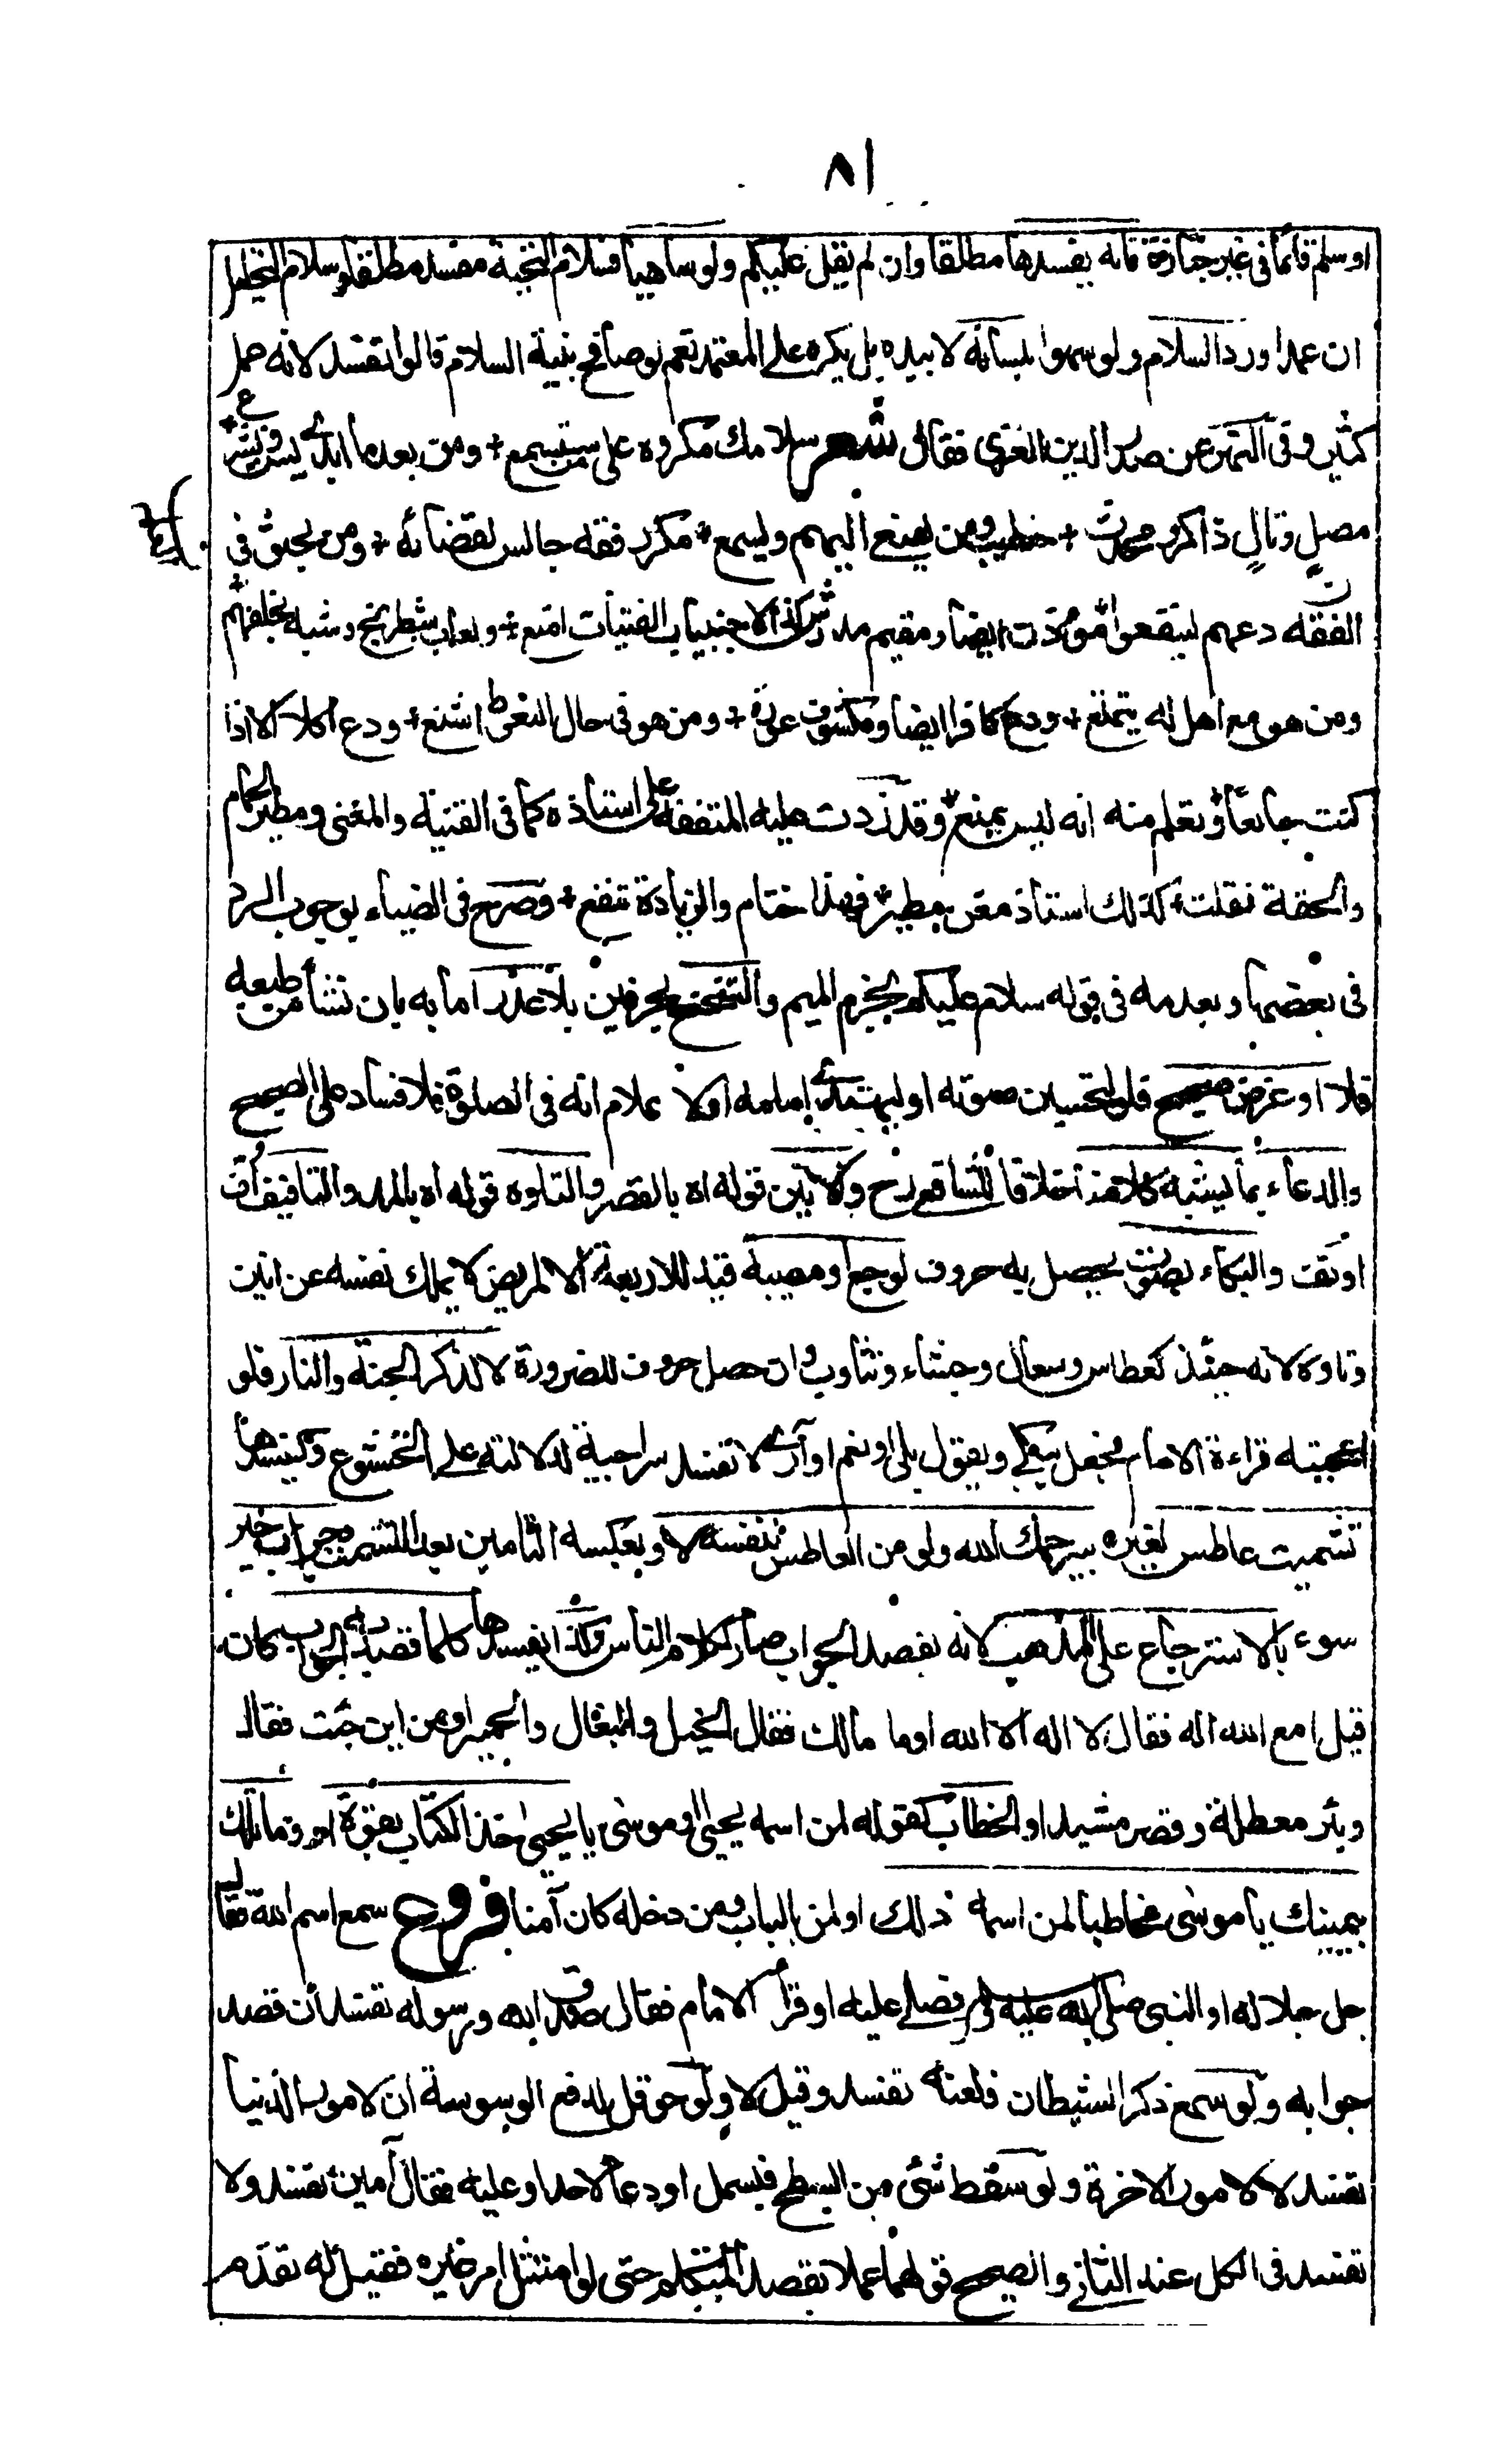 ٨١
او سلم قائما فى غير جنازة فانه يفسدها مطلقا وان لم يقل عليكم ولو ساهيا فسلام التحية مفسد مطلقا وسلام التحليل
ان عمدا ورد السلام ولو سهوا بلسانه لا بيده بل يكره على المعتمد نعم لو صافح بنية السلام قالوا تفسد لانه عمل
كثير وفى النهر عن صدر الدين الغزى فقال شعر سلامك مكروه على من ستسمع + ومن بعد ما ابدى يسن ويشرع +
مصلٍ وتالٍ ذاكر ومحدث + خطيب ومن يصغى اليهم ويسمع + مكرر فقه جالس لقضائه + ومن بحثوا فى
الفقه دعهم لينفعوا + مؤذن ايضا ومقيم مدرس كذا الاجنبيات الفتيات امنع + ولعاب شطرنج وشبه بخلقهم +
ومن هو مع اهل له يتمتع + ودع كافرا ايضا ومكشوف عورة + ومن هو فى حال التغوط اشنع + ودع اكلا الا اذا
كنت جائعا وتعلم منه انه ليس يمنع + وقد زدت عليه المتفقه على استاذه كما فى القنية والمغنى ومطير الحمام
والحقته فقلت + كذلك استاذ مغن مطير + فهذا ختام والزيادة تنفع + وصرح فى الضياء بوجوب الرد
فى بعضها وبعدمه فى قوله سلام عليكم بجزم الميم والتنحنح بحرفين بلا عذر اما به بان نشأ من طبعه
فلا او غرض صحيح فلو لتحسين صوته او ليهتدى امامه او لاعلام انه فى الصلوة فلا فساد على الصحيح
والدعاء بما يشبه كلامنا خلافا للشافعى رح والانين قوله اه بالقصر والتاوه قوله اه بالمد والتافيف اف
او تف والبكاء بصوت يحصل به حروف لوجع او مصيبة قيد للاربعة الا لمريض لا يملك نفسه عن انين
وتاوه لانه حينئذ كعطاس وسعال وجشاء وتثاوب وان حصل حروف للضرورة لا لذكر الجنة والنار فلو
اعجبته قراءة الامام فجعل يبكى ويقول بلى او نعم او آرى لا تفسد سراجية لدلالته على الخشوع ويفسدها
تشميت عاطس لغيره بيرحمك الله ولو من العاطس لنفسه لا وبعكسه التامين بعد التشميت وجواب خبر
سوء بالاسترجاع على المذهب لانه بقصد الجواب صار ككلام الناس وكذا يفسدها كلما قصد به الجواب كان
قيل امع الله اله فقال لا اله الا الله او ما مالك فقال الخيل والبغال والحمير او من اين جئت فقال
وبئر معطلة وقصر مشيد او الخطاب كقوله لمن اسمه يحيى او موسى يا يحيى خذ الكتاب بقوة او وما تلك
بيمينك يا موسى مخاطبا لمن اسمه ذلك او لمن بالباب ومن دخله كان آمنا فروح سمع اسم الله فقال
جل جلاله او النبى صلى الله عليه وسلم فصلى عليه او قرأ الامام فقال صدق الله ورسوله تفسد ان قصد
جوابه ولو سمع ذكر الشيطان فلعنه تفسد وقيل لا ولو حوقل لدفع الوسوسة ان لامور الدنيا
تفسد لا لامور الاخرة ولو سقط شئ من السطح فبسمل او دعا لاحد او عليه فقال آمين تفسد ولا
تفسد فى الكل عند الثانى والصحيح قولهما عملا بقصد المتكلم حتى لو امتثل امر غيره فقيل له تقدم